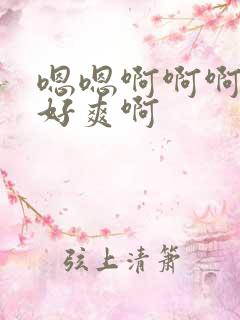 嗯嗯啊啊啊
好爽啊
弦上清箫